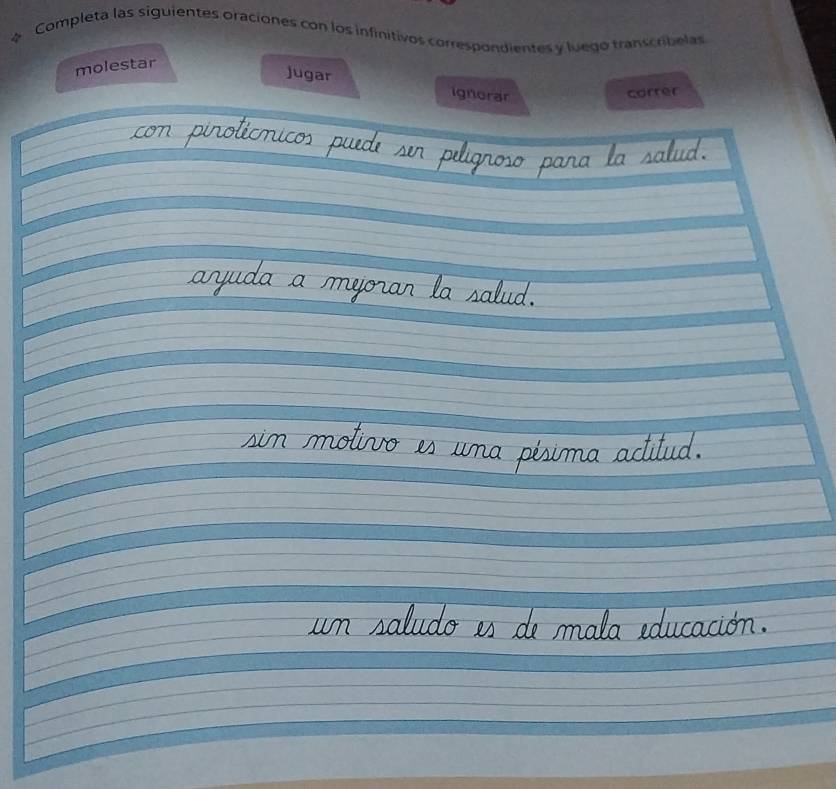 Completa las siguientes oraciones con los infinitivos correspondientes y luego transcríbelas.
molestar
Jugar
ignorar
correr
con pirotécnicos puede ser peligroso para la salud.
ayuda a mejorar la salud.
sin motivo es una pésima actitud.
un saludo es de mala educación.